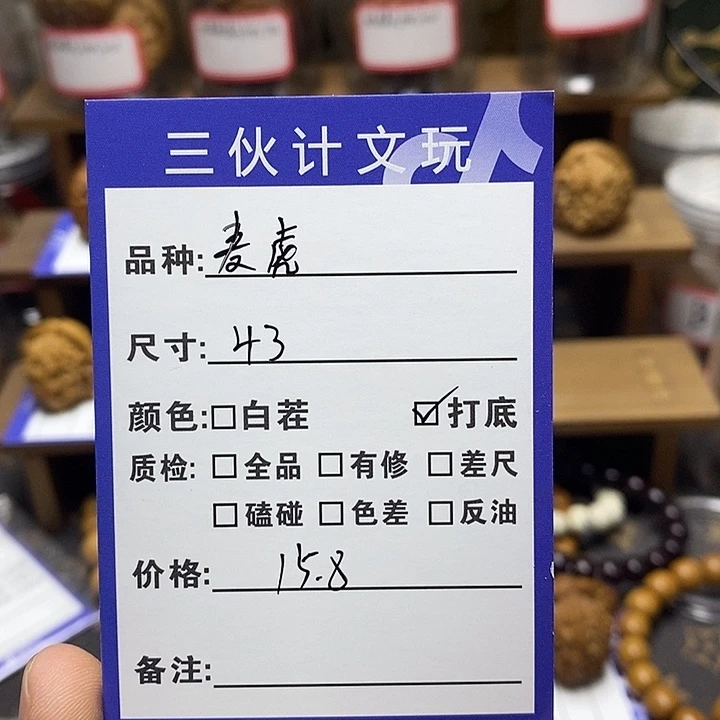 三伙计文玩
品种:麦虎
尺寸:43
颜色:□白茬 ☑打底
质检:□全品 □有修 □差尺
□磕碰 □色差 □反油
价格:15.8
备注: